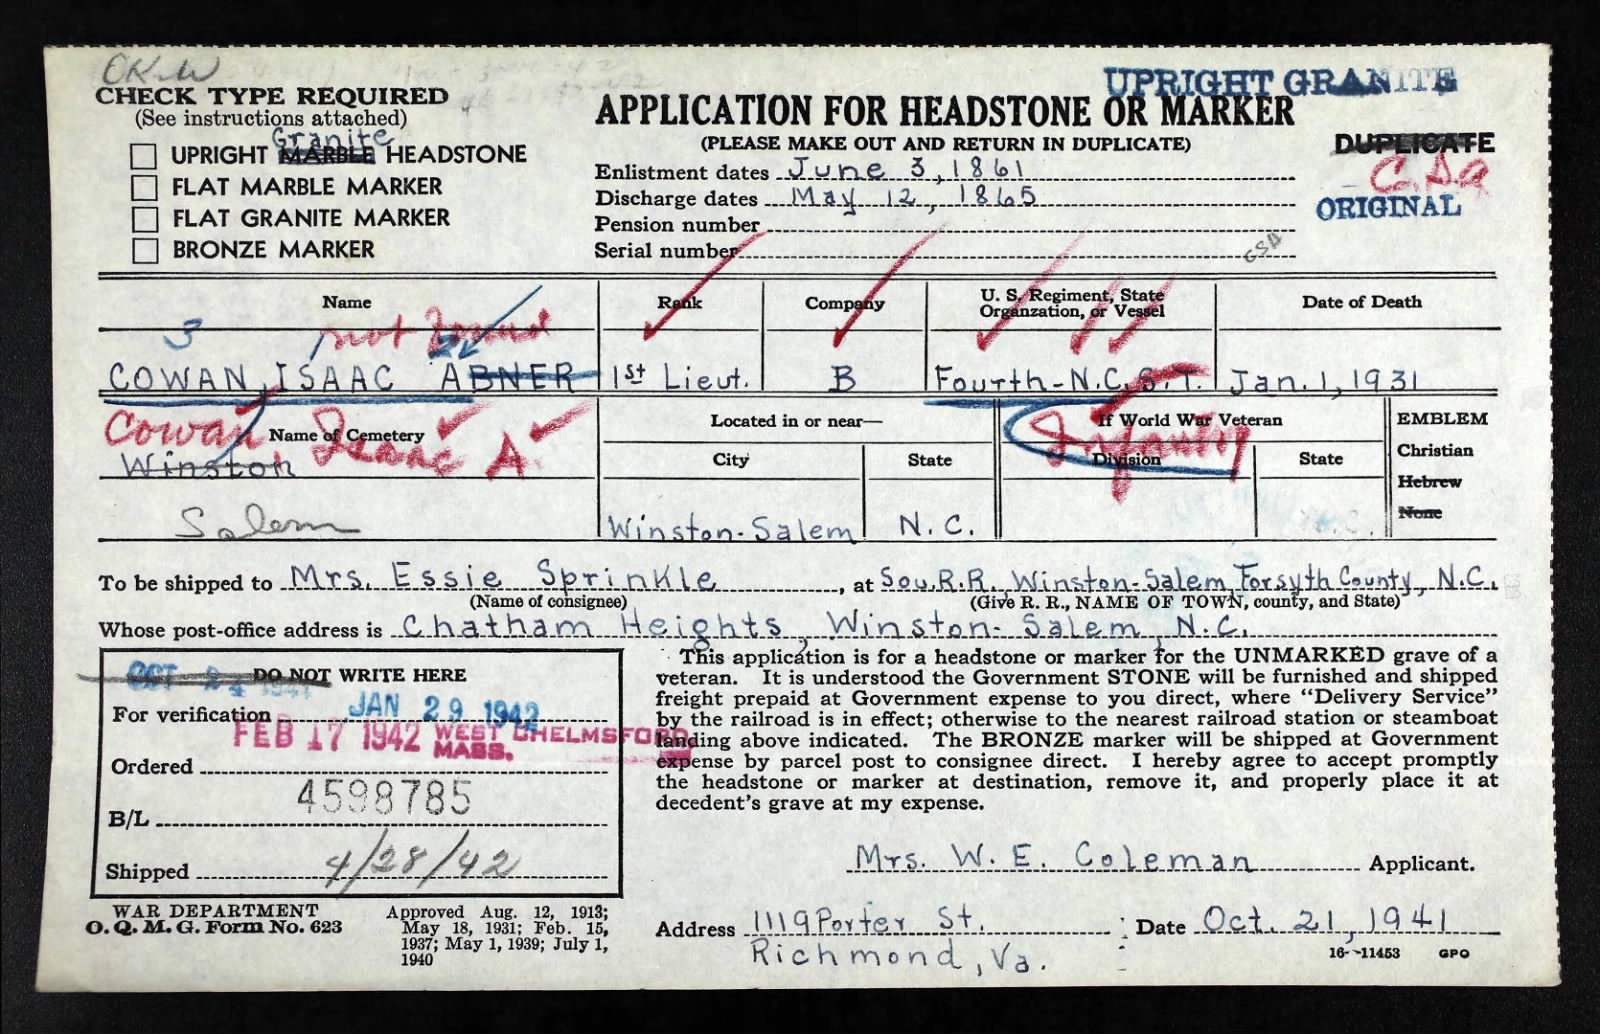 OK-W
CHECK TYPE REQUIRED
(See instructions attached)
Granite
UPRIGHT MARBLE HEADSTONE
FLAT MARBLE MARKER
FLAT GRANITE MARKER
BRONZE MARKER
UPRIGHT GRANITE
APPLICATION FOR HEADSTONE OR MARKER
(PLEASE MAKE OUT AND RETURN IN DUPLICATE)
DUPLICATE
ORIGINAL
Enlistment dates June 3, 1861
Discharge dates May 12, 1865
Pension number
Serial number
CSA
Name
Rank
Company
U. S. Regiment, State
Organzation, or Vessel
Date of Death
3 not found
COWAN, ISAAC ABNER
1st Lieut.
B
Fourth-N.C.S.T.
Jan. 1, 1931
Cowan Isaac A.
Name of Cemetery
Winston
Salem
Located in or near—
City
State
Winston-Salem
N.C.
If World War Veteran
Infantry
Division
State
EMBLEM
Christian
Hebrew
None
To be shipped to Mrs. Essie Sprinkle, at Sou. R.R. Winston-Salem, Forsyth County, N.C.
(Name of consignee) (Give R. R., NAME OF TOWN, county, and State)
Whose post-office address is Chatham Heights, Winston-Salem, N.C.
OCT 24 1941 DO NOT WRITE HERE
For verification JAN 29 1942
FEB 17 1942 WEST CHELMSFORD
MASS.
Ordered
4598785
B/L
Shipped 4/28/42
This application is for a headstone or marker for the UNMARKED grave of a
veteran. It is understood the Government STONE will be furnished and shipped
freight prepaid at Government expense to you direct, where “Delivery Service”
by the railroad is in effect; otherwise to the nearest railroad station or steamboat
landing above indicated. The BRONZE marker will be shipped at Government
expense by parcel post to consignee direct. I hereby agree to accept promptly
the headstone or marker at destination, remove it, and properly place it at
decedent's grave at my expense.
Mrs. W. E. Coleman Applicant.
Address 1119 Porter St. Date Oct. 21, 1941
Richmond, Va.
WAR DEPARTMENT
O. Q. M. G. Form No. 623
Approved Aug. 12, 1913;
May 18, 1931; Feb. 15,
1937; May 1, 1939; July 1,
1940
16—11453 GPO